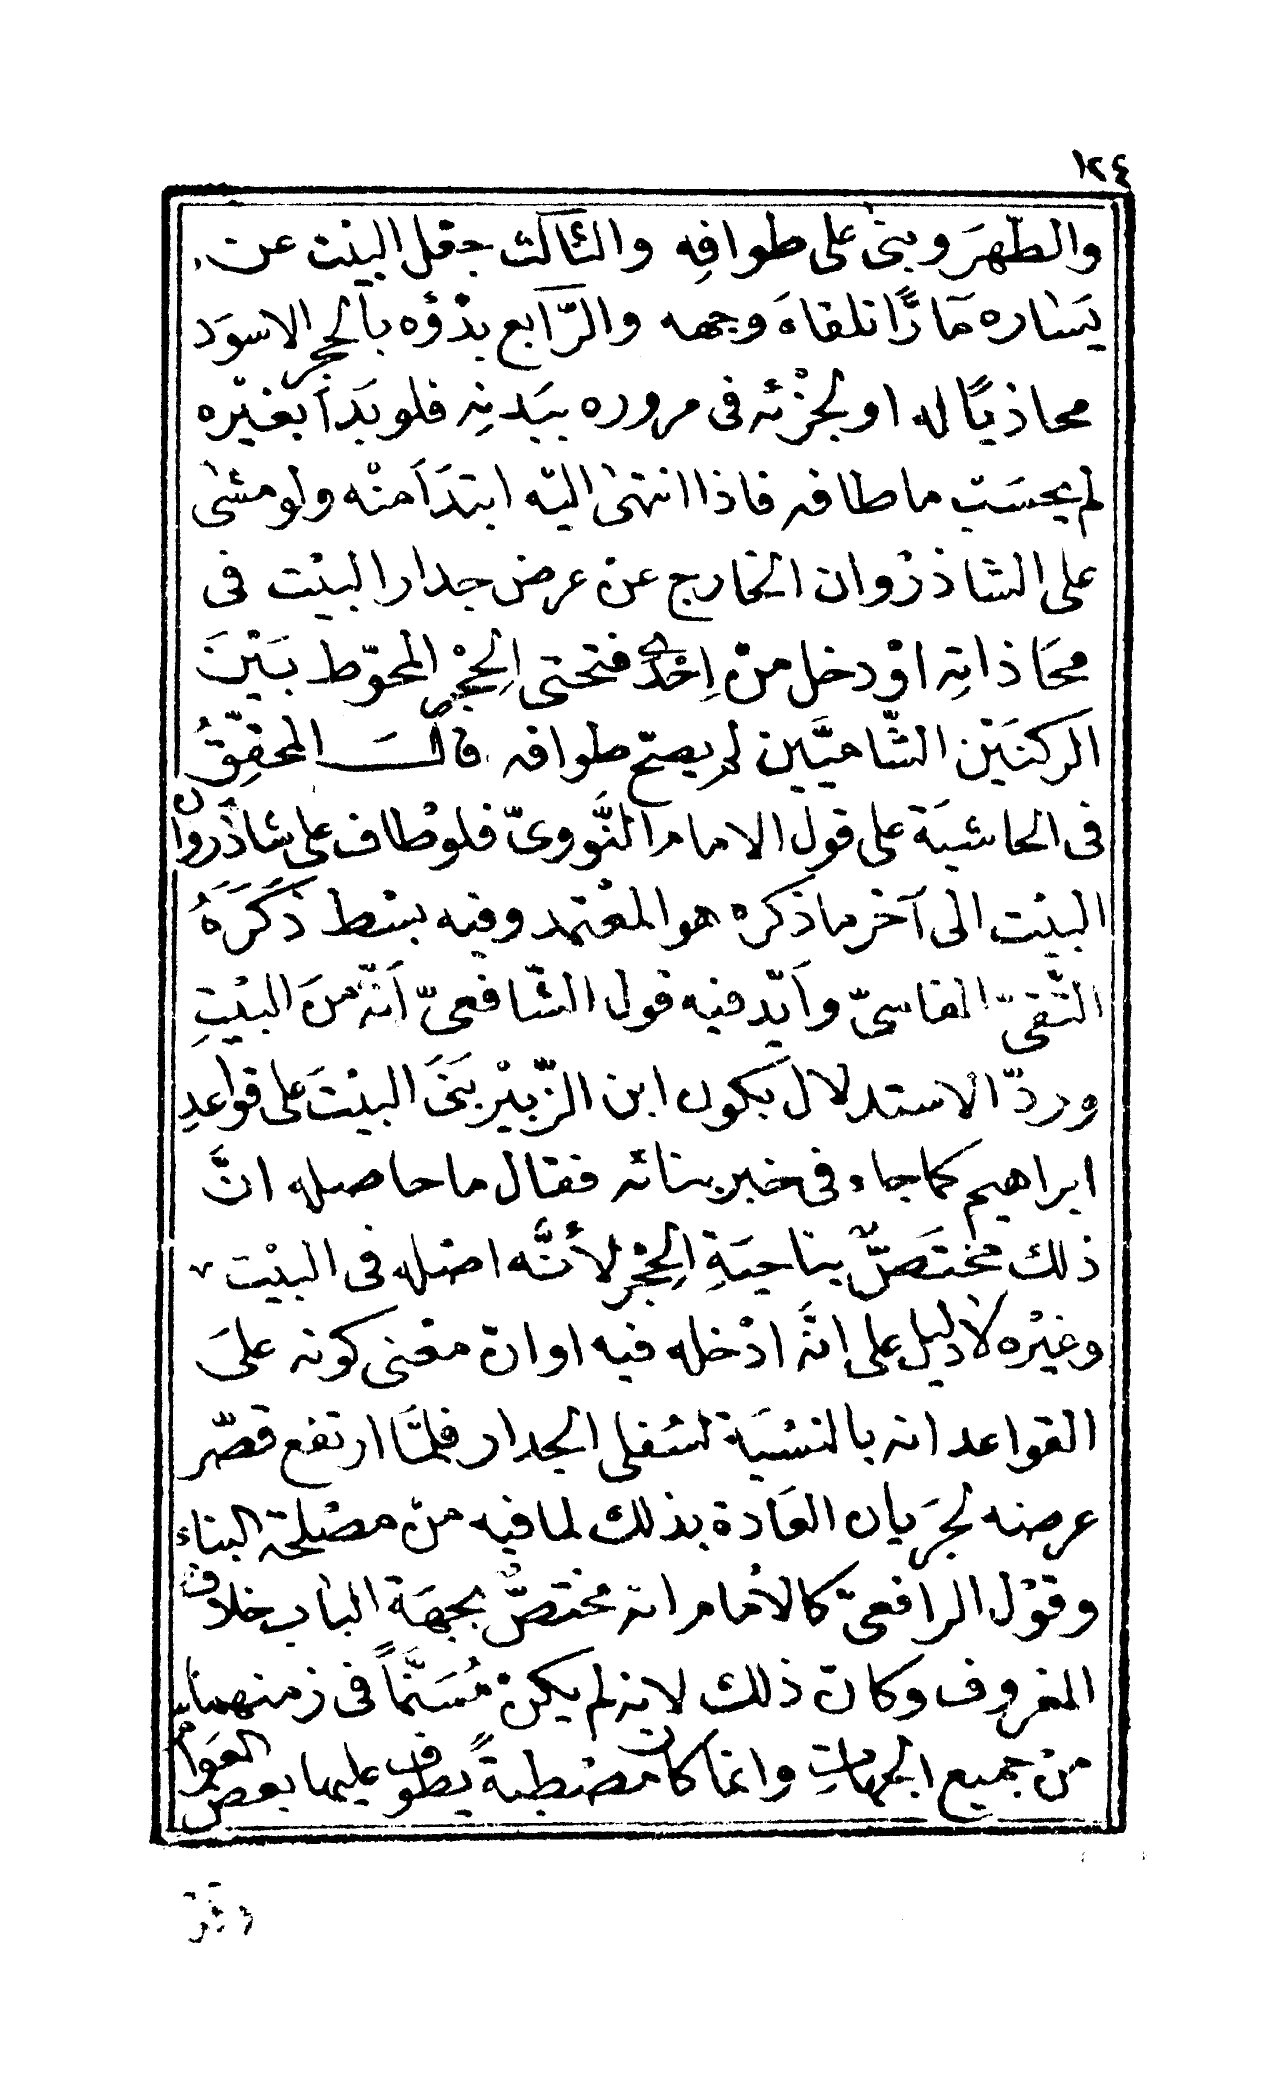 ١٢٤
والطّهرَ وبنىٰ على طوافِه والثّالث جعَل البيْت عن
يَسَاره مَارًّا تلقاءَ وجهه والرّابع بدْؤُه بالحجر الاسوَد
محاذيًا له او لجزْئه فى مروره ببَدنِه فلو بدَأ بغيْره
لم يحسَب ماطافه فاذا انتهىٰ اليْه ابتدَأ منْه ولو مشىٰ
على الشاذرْوان الخارج عنْ عرض جدار البيْت فى
محَاذاتِه اوْ دخل منْ اِحْدىٰ فتحتى الِحجْر المحوّط بَيْنَ
الركنيَيْن الشّاميَّين لم يصحّ طوافه قالَ المحقِّقُ
فى الحاشيَة على قول الامام النَّووىّ فلوْطاف على شاذرْوان
البيْت الى آخر ماذكره هو المعْتمد وفيه بسْط ذَكَرَهُ
التّقىّ الفاسىّ وأيّد فيه قول الشّافعىّ أنّه منَ البيْتِ
وردّ الاستدلال بكون ابن الزّبيْر بَنَى البيْتَ على قواعدِ
ابراهيم كما جاء فى خبر بنائه فقال ما حاصله انَّ
ذلك مختَصٌّ بناحيَةِ الحِجْر لأنَّه ادخله فى البيْت
وغيْره لا دليل على انَّه ادْخله فيه او انّ معْنى كونه علىَ
القواعد انه بالنسْبَة لسُفلى الجدار فلمَّا ارتفع قصّر
عرضه لجرَيان العَادة بذلك لما فيه منْ مصْلحة البناء
وقوْل الرافعىّ كالاْمام انه مختصٌّ بجهَة الباب خلاف
المعْروف وكانّ ذلك لانه لم يكنْ مُسَنَّماً فى زمنهما
منْ جميع الجهات وانما كان مصْطبةً يطوف عليها بعض العَوام